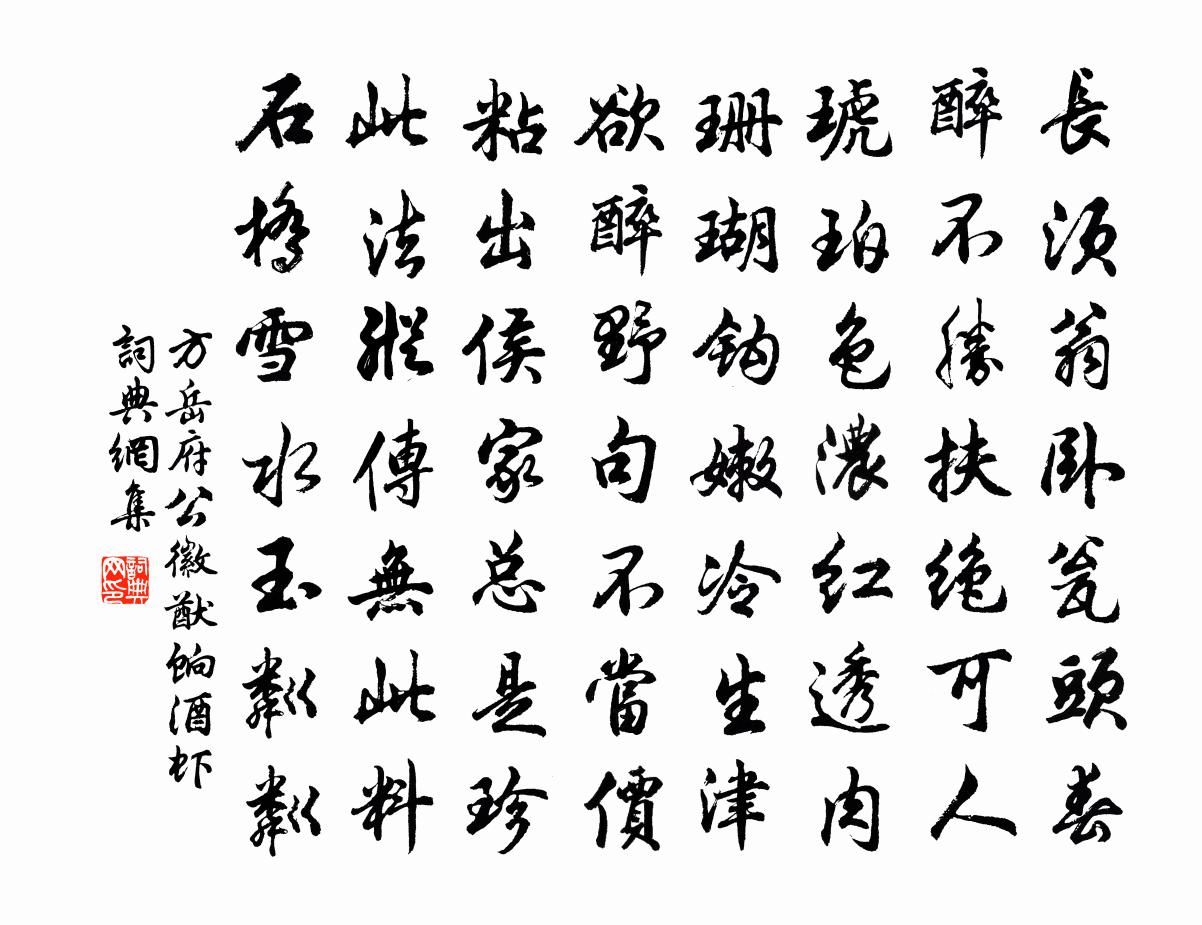 長須翁臥瓮頭春
醉不勝扶絕可人
琥珀色濃红透肉
珊瑚鈎嫩冷生津
欲醉野句不當價
粘出侯家总是珍
此法縱傳無此料
石橋雪水玉粼粼
方岳府公徽猷餉酒虾
詞典網集
詞典网印